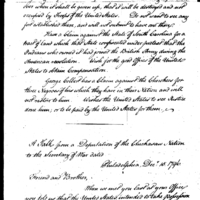 over when it shall be given up, that it will be destroyed and not
occupied by Troops of the United States. Do not want to see any
for established there, and will not submit to have one there.
Have a Claim against the State of South Carolina for a
tract of Land which that State confiscated under pretext that the
Indians who owned it had joined the British Army during the
American revolution. Wish for the good Offices of the United
States to obtain Compensation.
George Colbert has a Claim against the Cherokees for
three Negroes of his which they have in their Nation and will
not restore to him. Wishes the United States to see Justice
done him, or to be paid by the United States for them.
A Talk from a Deputation of the Chickasaw Nation
to the Secretary of War dated
Philadelphia, Dec. 1796.
Friend and Brother,
When we met you last at your Office
you told us that the United States intended to take possession